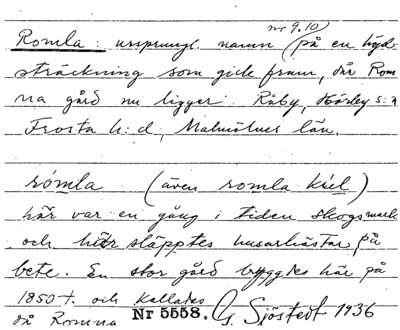 nr 9.10
Romla: ursprungl. namn (på en höjd-
sträckning som gick fram, där Rom
na gård nu ligger. Råby, Hörby s:n
Frosta h:d, Malmöhus län.
rómla (även romla kiel)
här var en gång i tiden skogsmark
och här släpptes husarhästar på
bete. En stor gård byggdes här på
1850-t. och kallades
då Romna Nr 5558. G. Sjöstedt 1936